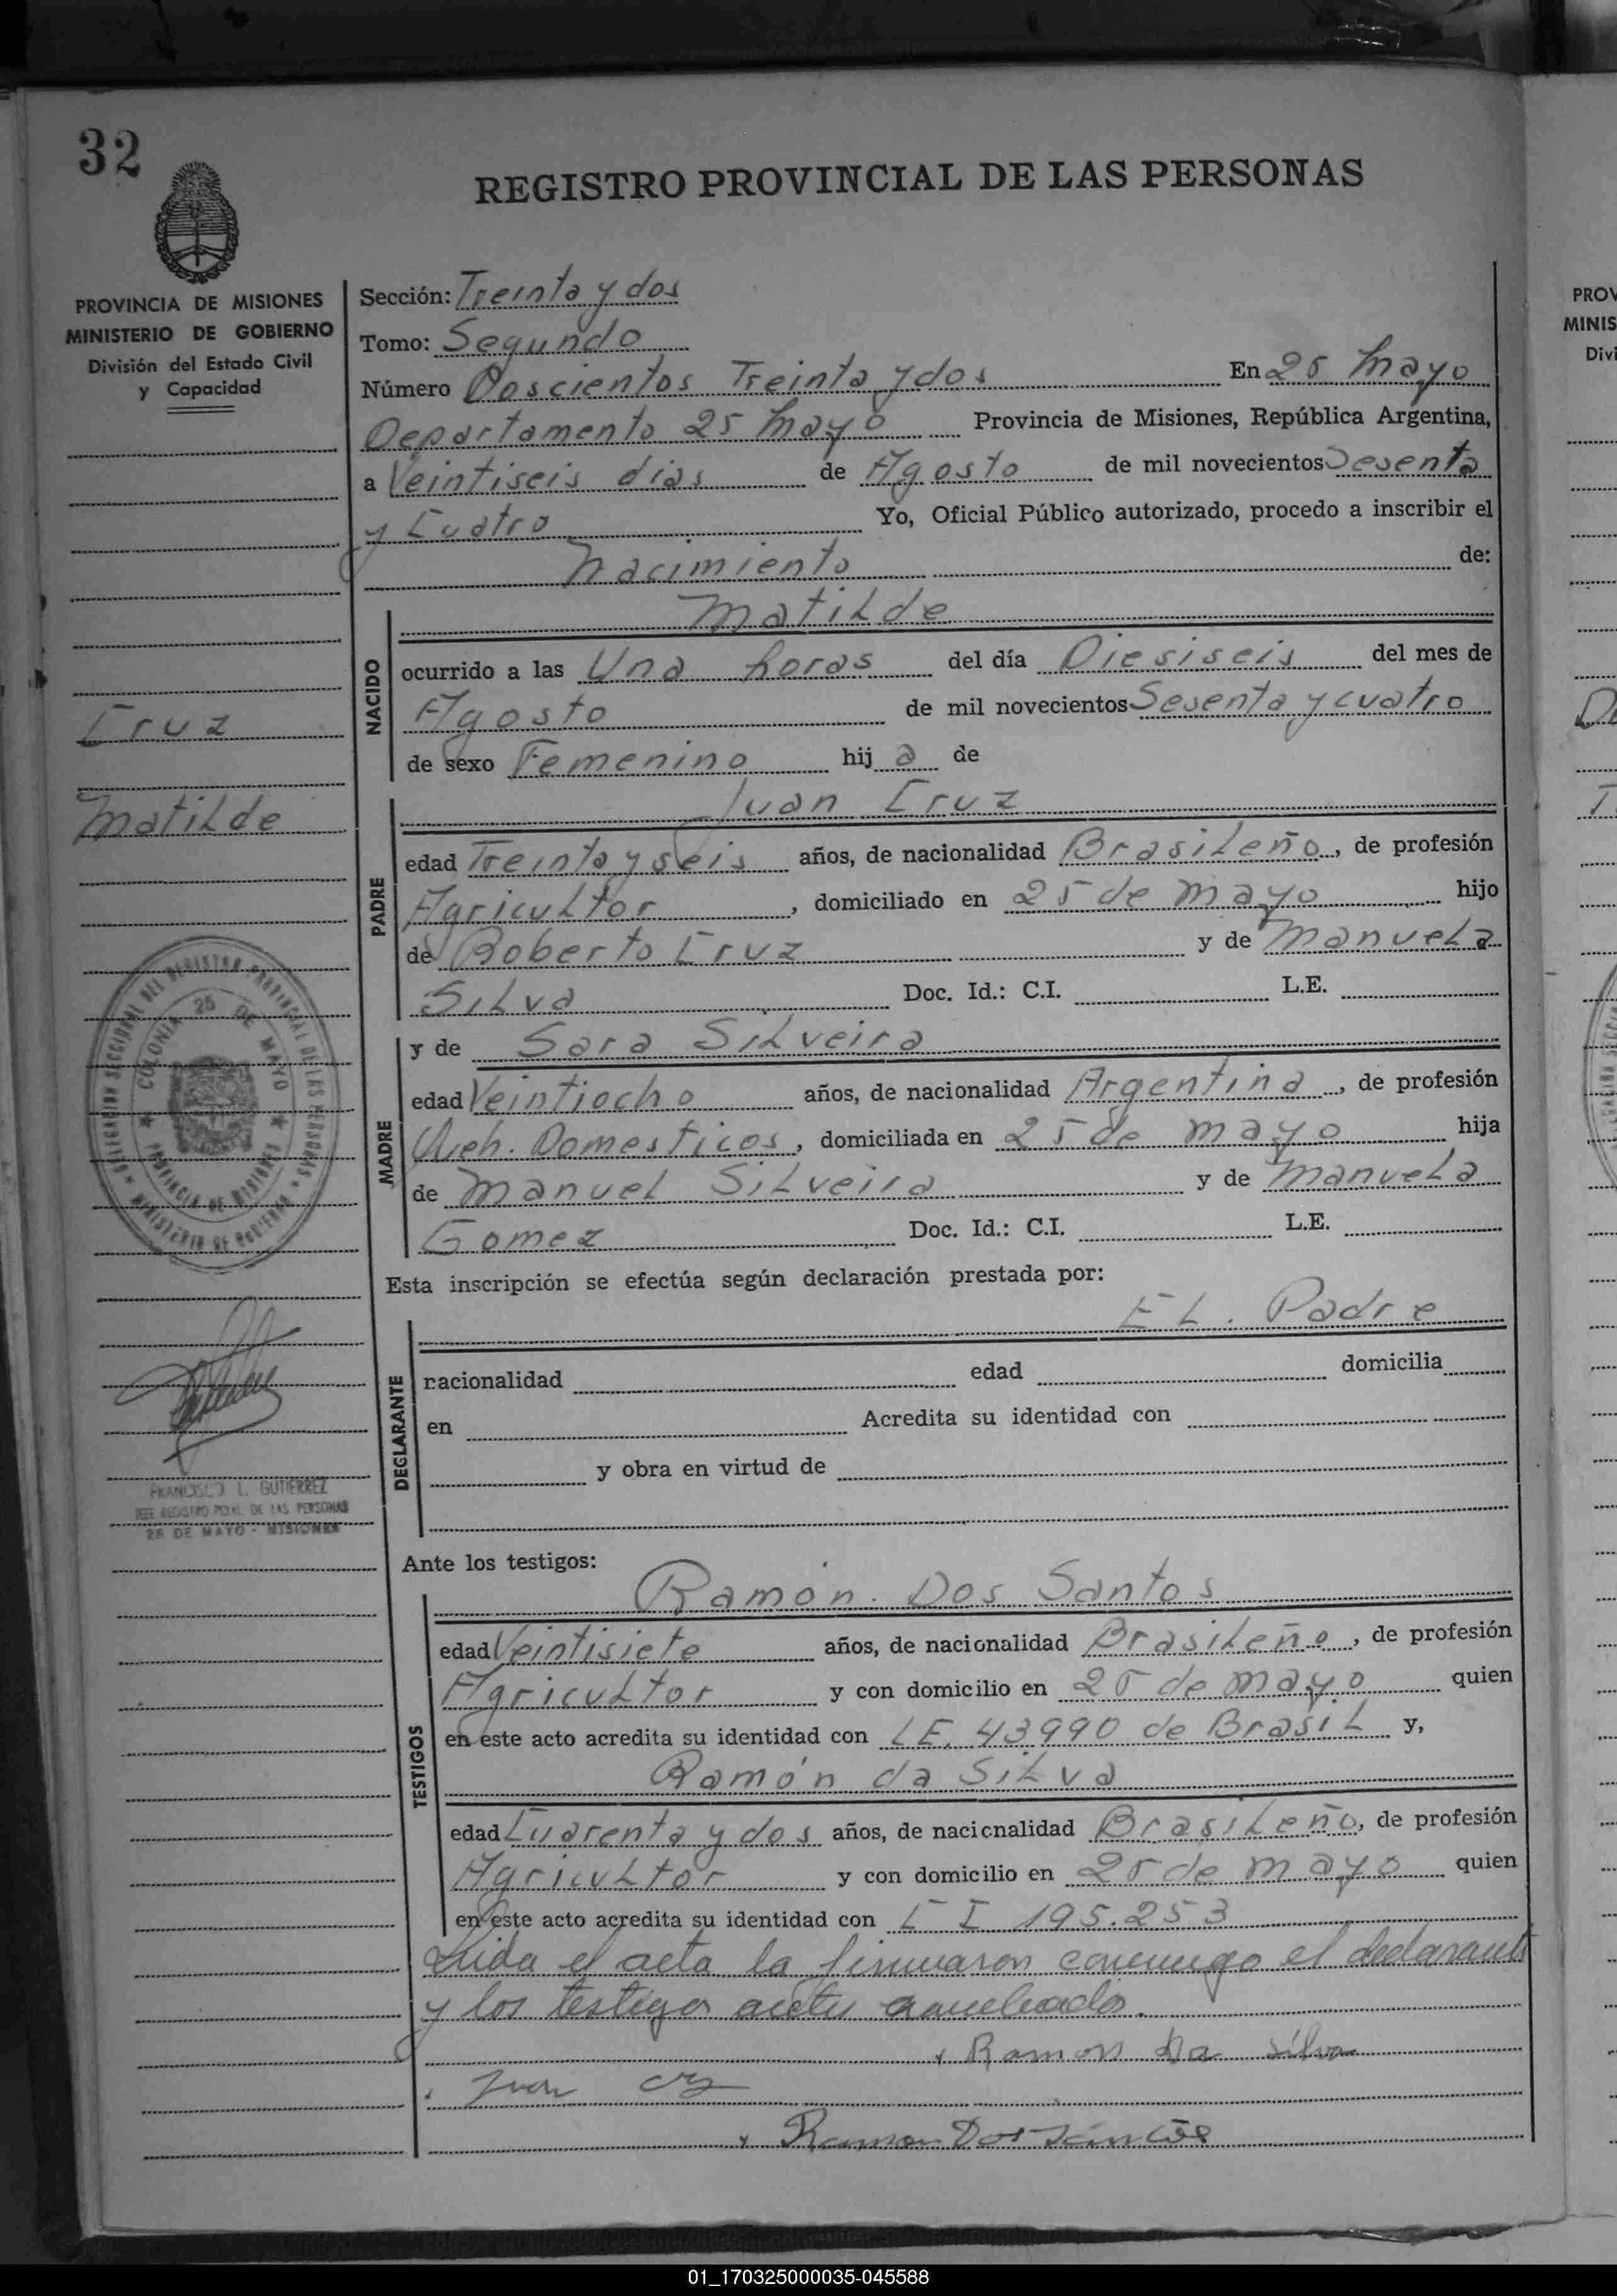 32
REGISTRO PROVINCIAL DE LAS PERSONAS
PROVINCIA DE MISIONES
MINISTERIO DE GOBIERNO
División del Estado Civil
y Capacidad
Cruz
Matilde
COLONIA 25 DE MAYO
FRANCISCO L. GUTIERREZ
JEFE REGISTRO PCIAL. DE LAS PERSONAS
25 DE MAYO - MISIONES
Sección: Treinta y dos
Tomo: Segundo
Número Doscientos Treinta y dos En 25 Mayo
Departamento 25 Mayo Provincia de Misiones, República Argentina,
a Veintiseis dias de Agosto de mil novecientos Sesenta
y Cuatro Yo, Oficial Público autorizado, procedo a inscribir el
Nacimiento de:
NACIDO
Matilde
ocurrido a las Una horas del día Diesiseis del mes de
Agosto de mil novecientos Sesenta y cuatro
de sexo Femenino hij a de
PADRE
Juan Cruz
edad Treinta y seis años, de nacionalidad Brasileño, de profesión
Agricultor, domiciliado en 25 de mayo hijo
de Roberto Cruz y de Manuela
Silva Doc. Id.: C.I. L.E.
MADRE
y de Sara Silveira
edad Veintiocho años, de nacionalidad Argentina, de profesión
Queh. Domesticos, domiciliada en 25 de mayo hija
de Manuel Silveira y de Manuela
Gomez Doc. Id.: C.I. L.E.
Esta inscripción se efectúa según declaración prestada por:
DECLARANTE
EL. Padre
nacionalidad edad domicilia
en Acredita su identidad con
y obra en virtud de
Ante los testigos:
TESTIGOS
Ramón. Dos Santos
edad Veintisiete años, de nacionalidad Brasileño, de profesión
Agricultor y con domicilio en 25 de mayo quien
en este acto acredita su identidad con LE. 43990 de Brasil y,
Ramón da Silva
edad Cuarenta y dos años, de nacionalidad Brasileño, de profesión
Agricultor y con domicilio en 25 de mayo quien
en este acto acredita su identidad con C I 195.253
Leida el acta la firmaron conmigo el declarante
y los testigos
Ramon Da Silva
Juan
Ramon Dos Santos
PROV
MINIS
Divi
01_170325000035-045588